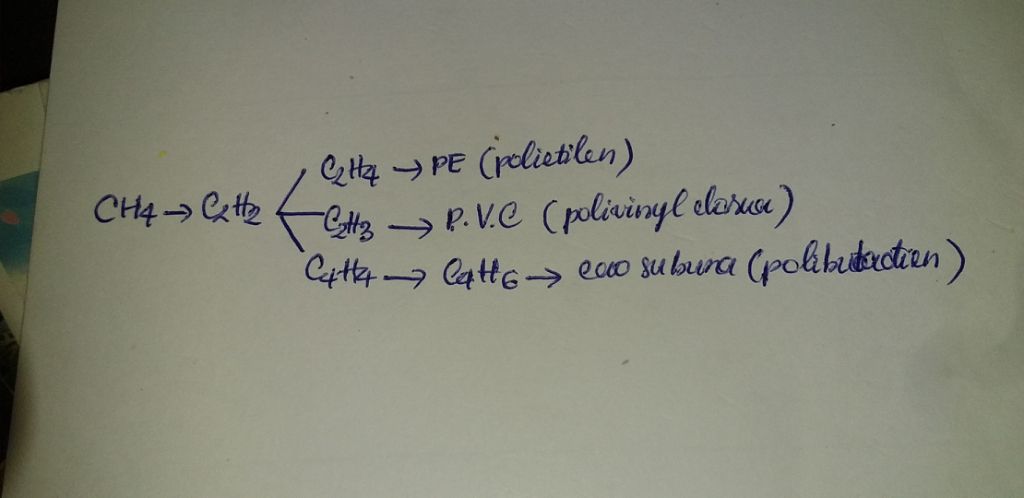 C2H4 → PE (polietilen)
CH4 → C2H2 C2H3 → P.V.C (polivinyl clorua)
C4H4 → C4H6 → cao su buna (polibutadien)